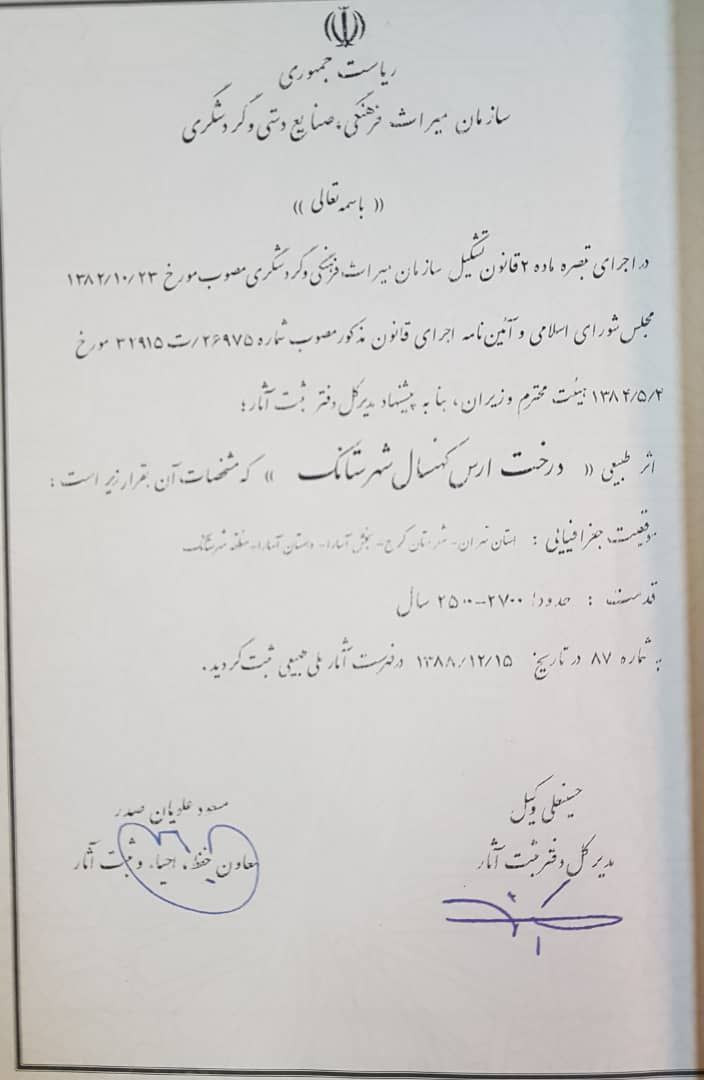 ریاست جمهوری
سازمان میراث فرهنگی، صنایع دستی و گردشگری
(( باسمه تعالی ))
در اجرای تبصره ماده ۲ قانون تشکیل سازمان میراث فرهنگی و گردشگری مصوب مورخ ۱۳۸۲/۱۰/۲۳
مجلس شورای اسلامی و آئین نامه اجرای قانون مذکور مصوب شماره ۲۶۹۷۵/ت ۳۲۹۱۵ مورخ
۱۳۸۴/۵/۴ هیئت محترم وزیران، بنا به پیشنهاد مدیرکل دفتر ثبت آثار؛
اثر طبیعی (( درخت ارس کهنسال شهرستانک )) که مشخصات آن بقرار زیر است :
موقعیت جغرافیایی : استان تهران- شهرستان کرج- بخش آسارا- دهستان آسارا- منطقه شهرستانک
قدمت : حدودا ۲۷۰۰-۲۵۰۰ سال
به شماره ۸۷ در تاریخ ۱۳۸۸/۱۲/۱۵ در فهرست آثار ملی طبیعی ثبت گردید.
حسینعلی وکیل
مدیرکل دفتر ثبت آثار
مسعود علویان صدر
معاون حفظ، احیاء و ثبت آثار